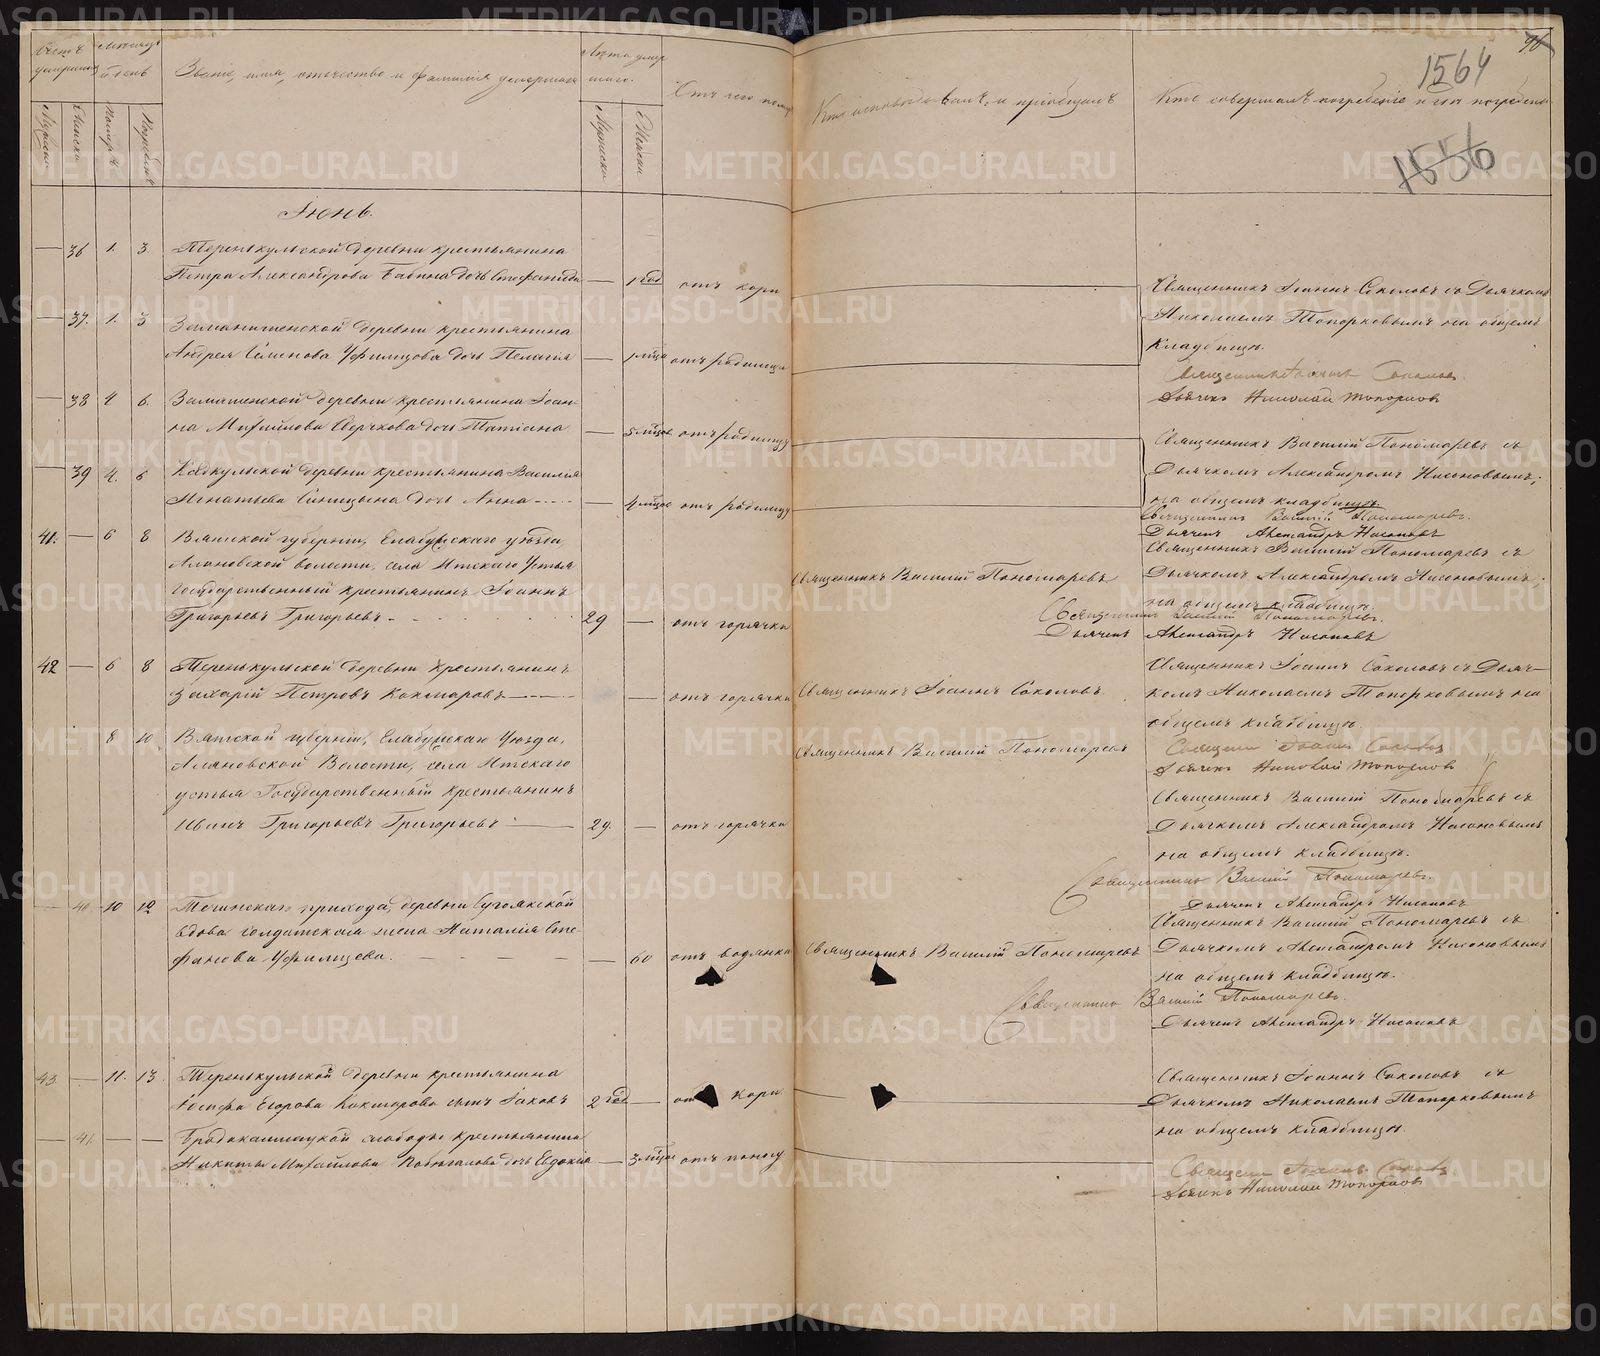 Звание, имя, отчество и фамилія умершаго
Отъ чего померъ
Кто исповѣдывалъ и пріобщалъ
Кто совершалъ погребеніе и гдѣ погребены
1564
1556
Іюнь.
36 1. 3. Теренькульской деревни крестьянина
Петра Александрова Бабина дочь Стефанида — 1 год отъ кори
Священникъ Іоаннъ Соколовъ съ Дьячкомъ
Николаемъ Топорковымъ на общемъ
кладбищѣ.
37. 1. 3 деревни крестьянина
Андрея Семенова Уфимцова дочь Пелагія — 1 мѣца отъ родимца
Священникъ Іоаннъ Соколовъ
Дьячекъ Николай Топорковъ
38 4 6. деревни крестьянина Іоан-
на Михайлова дочь Татіана — 5 мѣцов отъ родимцу
Священникъ Василій Пономаревъ съ
Дьячкомъ Александромъ Насоновымъ,
на общемъ кладбищѣ.
39 4. 6 деревни крестьянина Василія
Игнатьева Синицына дочь Анна — 4 мѣцов отъ родимцу
Священникъ Василій Пономаревъ.
Дьячекъ Александръ Насоновъ
41. — 6 8 Вятской губерніи, Елабужскаго уѣзда,
волости, села Итскаго Устья
Государственный крестьянинъ Іоаннъ
Григорьевъ Григорьевъ 29 — отъ горячки
Священникъ Василій Пономаревъ
Священникъ Василій Пономаревъ съ
Дьячкомъ Александромъ Насоновымъ,
на общемъ кладбищѣ.
Священникъ Василій Пономаревъ.
Дьячекъ Александръ Насоновъ
42 — 6 8 Теренькульской деревни крестьянинъ
Захарій Петровъ Кокшаровъ — отъ горячки
Священникъ Іоаннъ Соколовъ.
Священникъ Іоаннъ Соколовъ съ Дьяч-
комъ Николаемъ Топорковымъ на
общемъ кладбищѣ.
Іоаннъ Соколовъ
Дьячекъ Николай Топорковъ
8 10 Вятской губерніи, Елабужскаго Уѣзда,
Волости, села Итскаго
устья Государственный крестьянинъ
Иванъ Григорьевъ Григорьевъ — 29. — отъ горячки
Священникъ Василій Пономаревъ
Священникъ Василій Пономаревъ съ
Дьячкомъ Александромъ Насоновымъ
на общемъ кладбищѣ.
Священникъ Василій Пономаревъ.
Дьячекъ Александръ Насоновъ
40 10 12 Теченскаго прихода, деревни
вдова солдатская жена Наталія Сте-
фанова Уфимцева. — 60 отъ водянки
Священникъ Василій Пономаревъ
Священникъ Василій Пономаревъ съ
Дьячкомъ Александромъ Насоновымъ
на общемъ кладбищѣ.
Священникъ Василій Пономаревъ.
Дьячекъ Александръ Насоновъ
43 — 11. 13. Теренькульской деревни крестьянина
Іосифа Егорова Кокшарова сынъ Іаковъ 2 год — кори
Священникъ Іоаннъ Соколовъ съ
Дьячкомъ Николаемъ Топорковымъ
на общемъ кладбищѣ.
— 41. — — Бродокалмацкой слободы крестьянина
Никиты Михайлова дочь Евдокія — 3 мѣцов отъ поносу
Іоаннъ Соколовъ
Дьячекъ Николай Топорковъ
METRIKI.GASO-URAL.RU